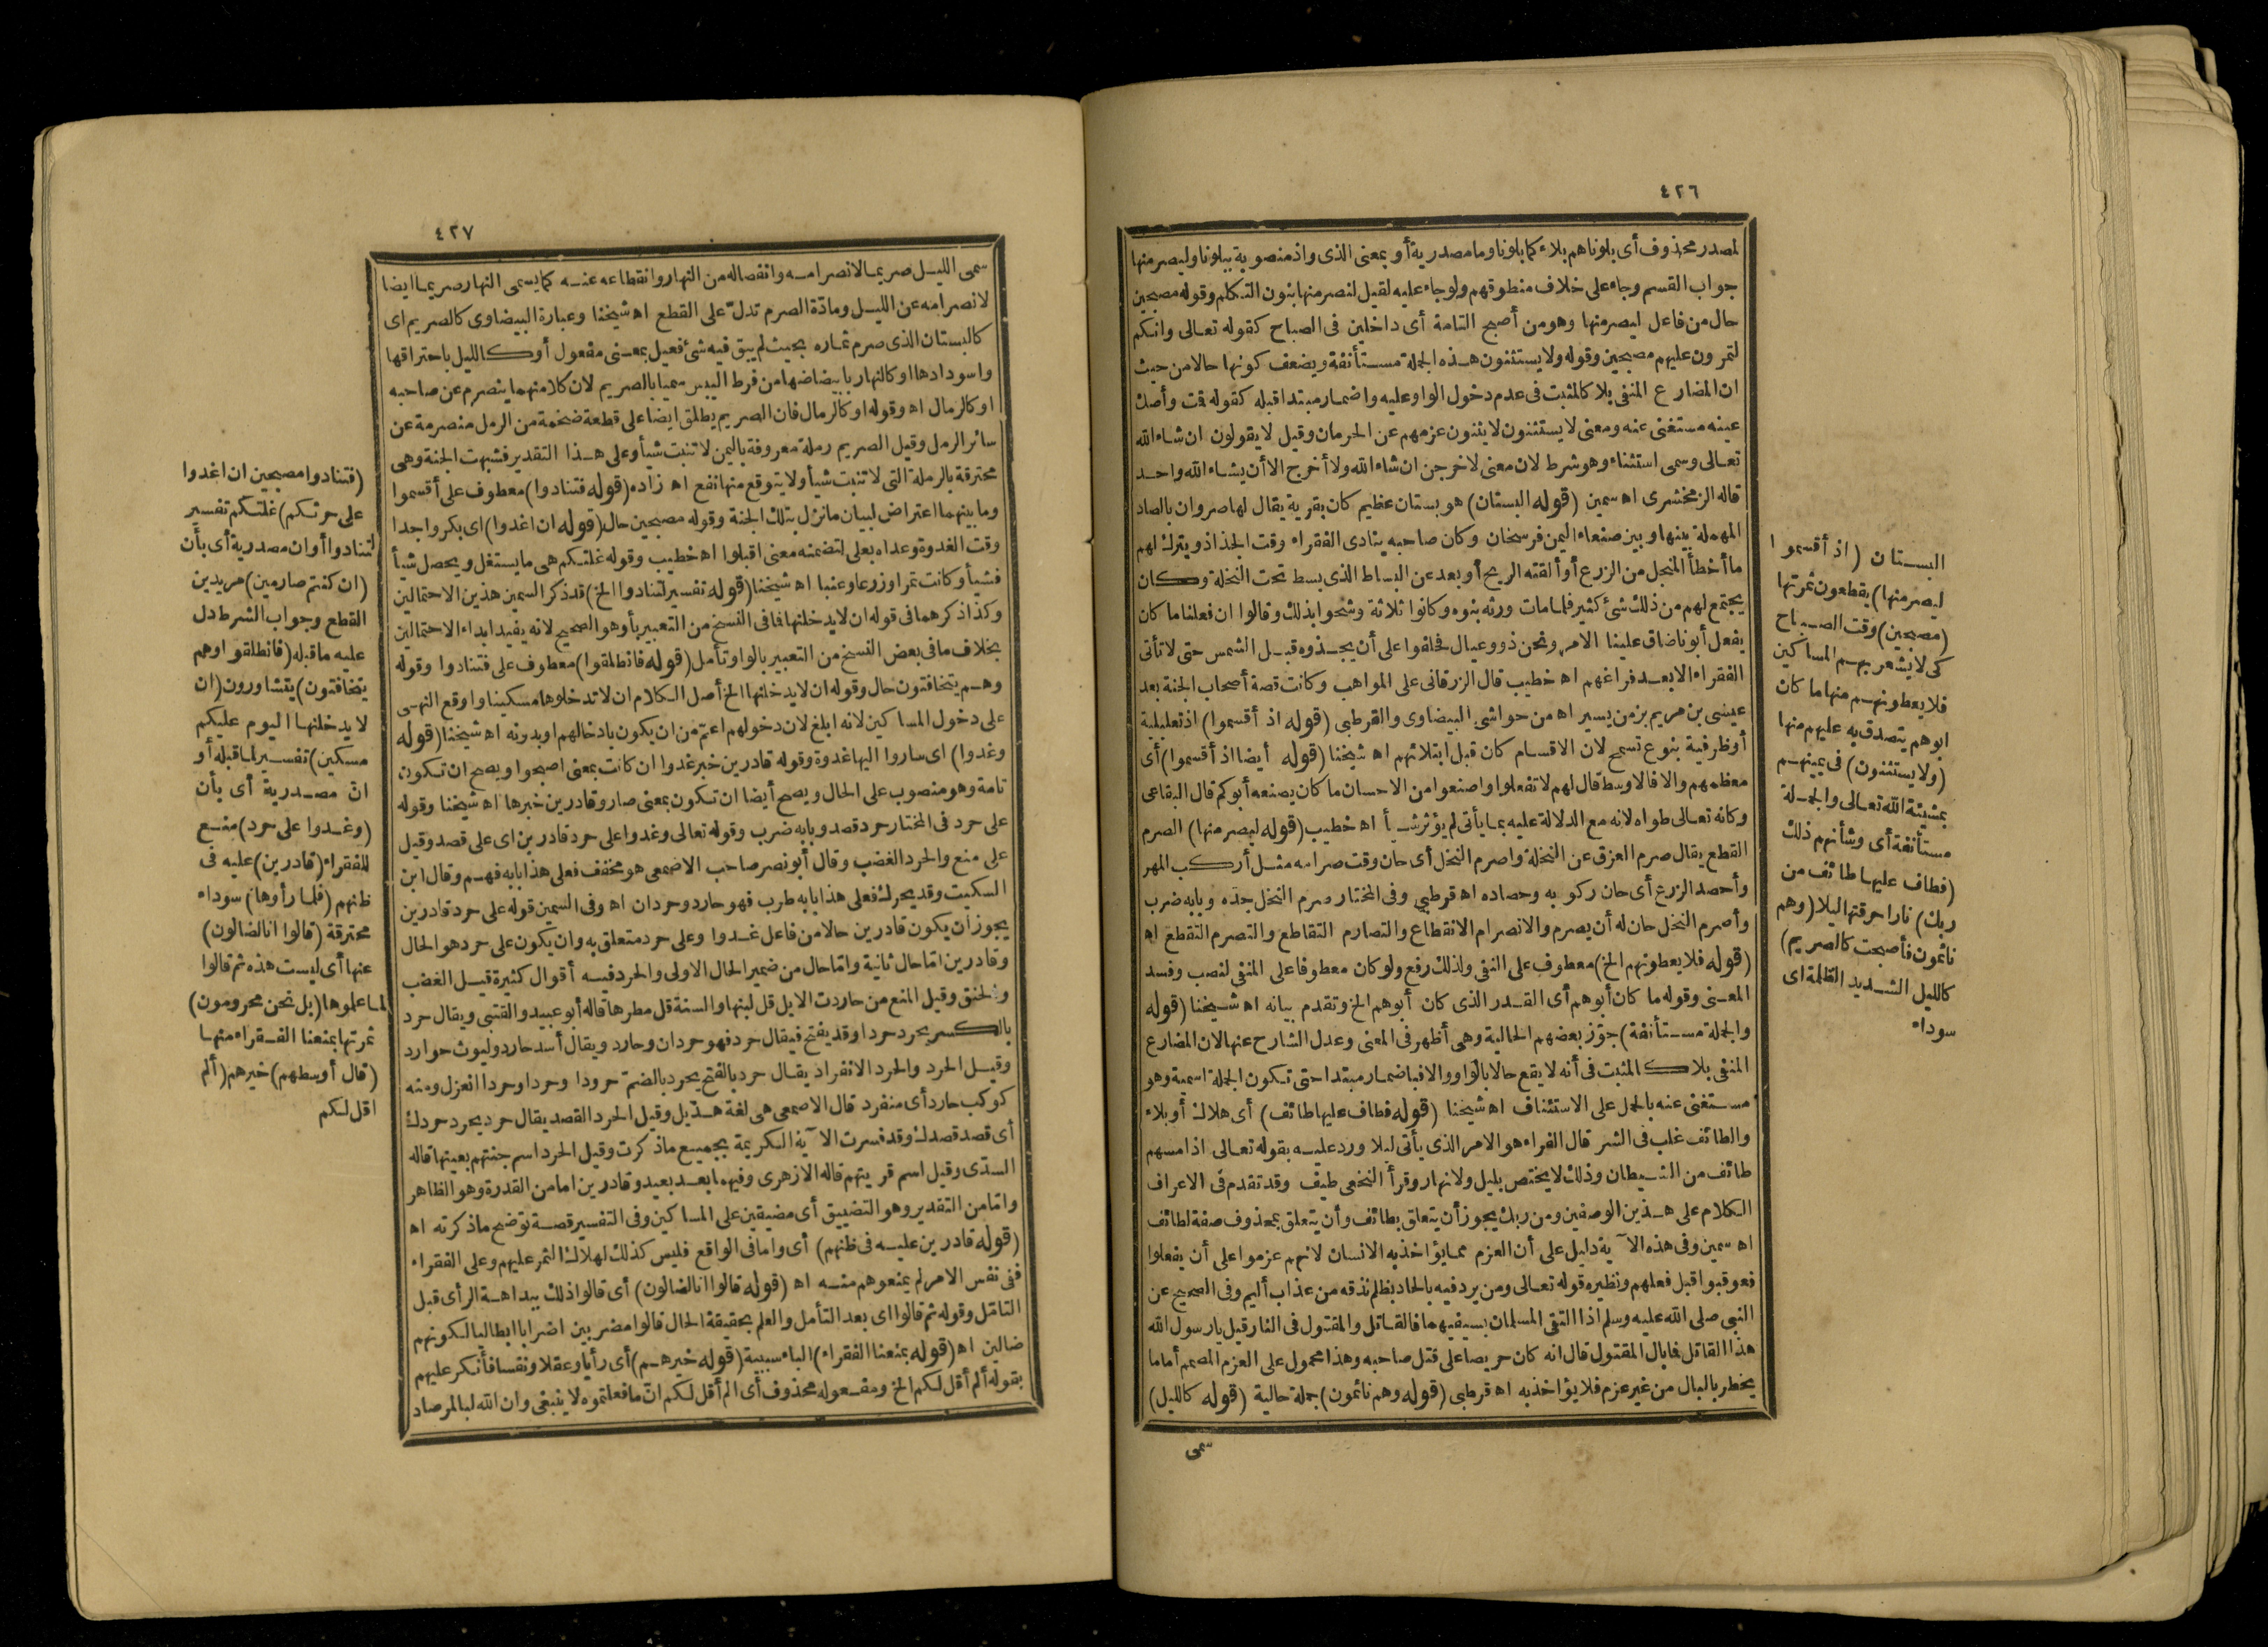 ٤٢٦
لمصدر محذوف أى بلوناهم بلاء كما بلونا وما مصدرية أو بمعنى الذى واذ منصوبة ببلونا وليصرمنها
جواب القسم وجاء على خلاف منطوقهم ولو جاء عليه لقيل لنصرمنها بنون التكلم وقوله مصبحين
حال من فاعل ليصرمنها وهو من أصبح التامة أى داخلين فى الصباح كقوله تعالى وانكم
لتمرون عليهم مصبحين وقوله ولا يستثنون هذه الجملة مستأنفة ويضعف كونها حالا من حيث
ان المضارع المنفى بلا كالمثبت فى عدم دخول الواو عليه واضمار مبتدا قبله كقوله قت وأصك
عينه مستغنى عنه ومعنى لا يستثنون لا يثنون عزمهم عن الحرمان وقيل لا يقولون ان شاء الله
تعالى وسمى استثناء وهو شرط لان معنى لاخرجن ان شاء الله ولا أخرج الا أن يشاء الله واحد
قاله الزمخشرى اه سمين (قوله البستان) هو بستان عظيم كان بقرية يقال لها صروان بالصاد
المهملة بينها وبين صنعاء اليمن فرسخان وكان صاحبه ينادى الفقراء وقت الجذاذ ويترك لهم
ما أخطأ المنجل من الزرع أو ألقته الريح أو بعد عن البساط الذى بسط تحت النخلة وكان
يجتمع لهم من ذلك شئ كثير فلما مات ورثه بنوه وكانوا ثلاثة وشحوا بذلك وقالوا ان فعلنا ما كان
يفعل أبونا ضاق علينا الامر ونحن ذوو عيال فحلفوا على أن يجذوه قبل الشمس حتى لا تأتى
الفقراء الا بعد فراغهم اه خطيب قال الزرقانى على المواهب وكانت قصة أصحاب الجنة بعد
عيسى بن مريم بزمن يسير اه من حواشى البيضاوى والقرطبى (قوله اذ أقسموا) اذ تعليلية
أو ظرفية بنوع تسمح لان الاقسام كان قبل ابتلائهم اه شيخنا (قوله أيضا اذ أقسموا) أى
معظمهم والا فالاوسط قال لهم لا تفعلوا واصنعوا من الاحسان ما كان يصنعه أبوكم قال البقاعى
وكانه تعالى طواه لانه مع الدلالة عليه بما يأتى لم يؤثر شيأ اه خطيب (قوله ليصرمنها) الصرم
القطع يقال صرم العزق عن النخلة وأصرم النخل أى حان وقت صرامه مثل أركب المهر
وأحصد الزرع أى حان ركوبه وحصاده اه قرطبى وفى المختار صرم النخل جذه وبابه ضرب
وأصرم النخل حان له أن يصرم والانصرام الانقطاع والتصارم التقاطع والتصرم التقطع اه
(قوله فلا يعطونهم الخ) معطوف على النفى ولذلك رفع ولو كان معطوفا على المنفى لنصب وفسد
المعنى وقوله ما كان أبوهم أى القدر الذى كان أبوهم الخ وتقدم بيانه اه شيخنا (قوله
والجملة مستأنفة) جوّز بعضهم الحالية وهى أظهر فى المعنى وعدل الشارح عنها لان المضارع
المنفى بلا كالمثبت فى أنه لا يقع حالا بالواو والا فباضمار مبتدا حتى تكون الجملة اسمية وهو
مستغنى عنه بالحمل على الاستئناف اه شيخنا (قوله فطاف عليها طائف) أى هلاك أو بلاء
والطائف غلب فى الشر قال الفراء هو الامر الذى يأتى ليلا ورد عليه بقوله تعالى اذا مسهم
طائف من الشيطان وذلك لا يختص بليل ولا نهار وقرأ النخعى طيف وقد تقدم فى الاعراف
الكلام على هذين الوصفين ومن ربك يجوز أن يتعلق بطائف وأن يتعلق بمحذوف صفة لطائف
اه سمين وفى هذه الآية دليل على أن العزم مما يؤاخذ به الانسان لانهم عزموا على أن يفعلوا
فعوقبوا قبل فعلهم ونظيره قوله تعالى ومن يرد فيه بالحاد بظلم نذقه من عذاب أليم وفى الصحيح عن
النبى صلى الله عليه وسلم اذا التقى المسلمان بسيفيهما فالقاتل والمقتول فى النار قيل يا رسول الله
هذا القاتل فما بال المقتول قال انه كان حريصا على قتل صاحبه وهذا محمول على العزم المصمم أما ما
يخطر بالبال من غير عزم فلا يؤاخذ به اه قرطبى (قوله وهم نائمون) جملة حالية (قوله كالليل)
سمى
البستان (اذ أقسموا
ليصرمنها) يقطعون ثمرتها
(مصبحين) وقت الصباح
كى لا يشعر بهم المساكين
فلا يعطونهم منها ما كان
ابوهم يتصدق به عليهم منها
(ولا يستثنون) فى يمينهم
بمشيئة الله تعالى والجملة
مستأنفة أى وشأنهم ذلك
(فطاف عليها طائف من
ربك) نار احرقتها ليلا (وهم
نائمون فأصبحت كالصريم)
كالليل الشديد الظلمة اى
سوداء
٤٢٧
سمى الليل صريما لانصرامه وانفصاله من النهار وانقطاعه عنه كما يسمى النهار صريما ايضا
لانصرامه عن الليل ومادّة الصرم تدلّ على القطع اه شيخنا وعبارة البيضاوى كالصريم اى
كالبستان الذى صرم ثماره بحيث لم يبق فيه شئ فعيل بمعنى مفعول أو كالليل باحتراقها
واسودادها او كالنهار بابيضاضها من فرط اليبس سميا بالصريم لان كلا منهما ينصرم عن صاحبه
او كالرمال اه وقوله او كالرمال فان الصريم يطلق ايضا على قطعة ضخمة من الرمل منصرمة عن
سائر الرمل وقيل الصريم رملة معروفة باليمن لا تنبت شيأ وعلى هذا التقدير فشبهت الجنة وهى
محترقة بالرملة التى لا تنبت شيأ ولا يتوقع منها نفع اه زاده (قوله فتنادوا) معطوف على أقسموا
وما بينهما اعتراض لبيان ما نزل بتلك الجنة وقوله مصبحين حال (قوله ان اغدوا) اى بكروا جدا
وقت الغدوة وعداه بعلى لتضمنه معنى اقبلوا اه خطيب وقوله غلتكم هى ما يستغل ويحصل شيأ
فشيأ وكانت تمرا وزرعا وعنبا اه شيخنا (قوله تفسير لتنادوا الخ) قد ذكر السمين هذين الاحتمالين
وكذا ذكرهما فى قوله ان لا يدخلنها فافى النسخ من التعبير بأو هو الصحيح لانه يفيد ابداء الاحتمالين
بخلاف ما فى بعض النسخ من التعبير بالواو تأمل (قوله فانطلقوا) معطوف على فتنادوا وقوله
وهم يتخافتون حال وقوله ان لا يدخلنها الخ أصل الكلام ان لا تدخلوها مسكينا واوقع النهى
على دخول المساكين لانه ابلغ لان دخولهم اعمّ من ان يكون بادخالهم او بدونه اه شيخنا (قوله
وغدوا) اى ساروا اليها غدوة وقوله قادرين خبر غدوا ان كانت بمعنى اصبحوا ويصح ان تكون
تامة وهو منصوب على الحال ويصح أيضا ان تكون بمعنى صار وقادرين خبرها اه شيخنا وقوله
على حرد فى المختار حرد قصد وبابه ضرب وقوله تعالى وغدوا على حرد قادرين اى على قصد وقيل
على منع والحرد الغضب وقال أبو نصر صاحب الاصمعى هو مخفف فعلى هذا بابه فهم وقال ابن
السكيت وقد يحرك فعلى هذا بابه طرب فهو حارد وحردان اه وفى السمين قوله على حرد قادرين
يجوز أن يكون قادرين حالا من فاعل غدوا وعلى حرد متعلق به وان يكون على حرد هو الحال
وقادرين امّا حال ثانية وامّا حال من ضمير الحال الاولى والحرد فيه أقوال كثيرة قيل الغضب
والحنق وقيل المنع من حاردت الابل قل لبنها والسنة قل مطرها قاله أبو عبيد والقتبى ويقال حرد
بالكسر يحرد حردا وقد يفتح فيقال حرد فهو حردان وحارد ويقال أسد حارد وليوث حوارد
وقيل الحرد والحرد الانفراد يقال حرد بالفتح يحرد بالضمّ حرودا وحردا وحردا انعزل ومنه
كوكب حارد أى منفرد قال الاصمعى هى لغة هذيل وقيل الحرد القصد يقال حرد يحرد حردك
أى قصد قصدك وقد فسرت الآية الكريمة بجميع ما ذكرت وقيل الحرد اسم جنتهم بعينها قاله
السدّى وقيل اسم قريتهم قاله الازهرى وفيهما بعد بعيد وقادرين اما من القدرة وهو الظاهر
وامّا من التقدير وهو التضييق أى مضيقين على المساكين وفى التفسير قصة توضح ما ذكرته اه
(قوله قادرين عليه فى ظنهم) أى واما فى الواقع فليس كذلك لهلاك الثمر عليهم وعلى الفقراء
ففى نفس الامر لم يمنعوهم منه اه (قوله قالوا انا لضالون) أى قالوا ذلك ببداهة الرأى قبل
التامّل وقوله ثم قالوا اى بعد التأمل والعلم بحقيقة الحال قالوا مضربين اضرابا ابطاليا لكونهم
ضالين اه (قوله بمنعنا الفقراء) الباء سببية (قوله خيرهم) أى رأيا وعقلا ونفسا فأنكر عليهم
بقوله ألم أقل لكم الخ ومفعوله محذوف أى الم أقل لكم انّ ما فعلتموه لا ينبغى وان الله لبالمرصاد
(فتنادوا مصبحين ان اغدوا
على حرثكم) غلتكم تفسير
لتنادوا أو ان مصدرية أى بأن
(ان كنتم صارمين) مريدين
القطع وجواب الشرط دل
عليه ما قبله (فانطلقوا وهم
يتخافتون) يتشاورون (ان
لا يدخلنها اليوم عليكم
مسكين) تفسير لما قبله أو
انّ مصدرية أى بأن
(وغدوا على حرد) منع
للفقراء (قادرين) عليه فى
ظنهم (فلما رأوها) سوداء
محترقة (قالوا انا لضالون)
عنها أى ليست هذه ثم قالوا
لما علموها (بل نحن محرومون)
ثمرتها بمنعنا الفقراء منها
(قال أوسطهم) خيرهم (ألم
اقل لكم